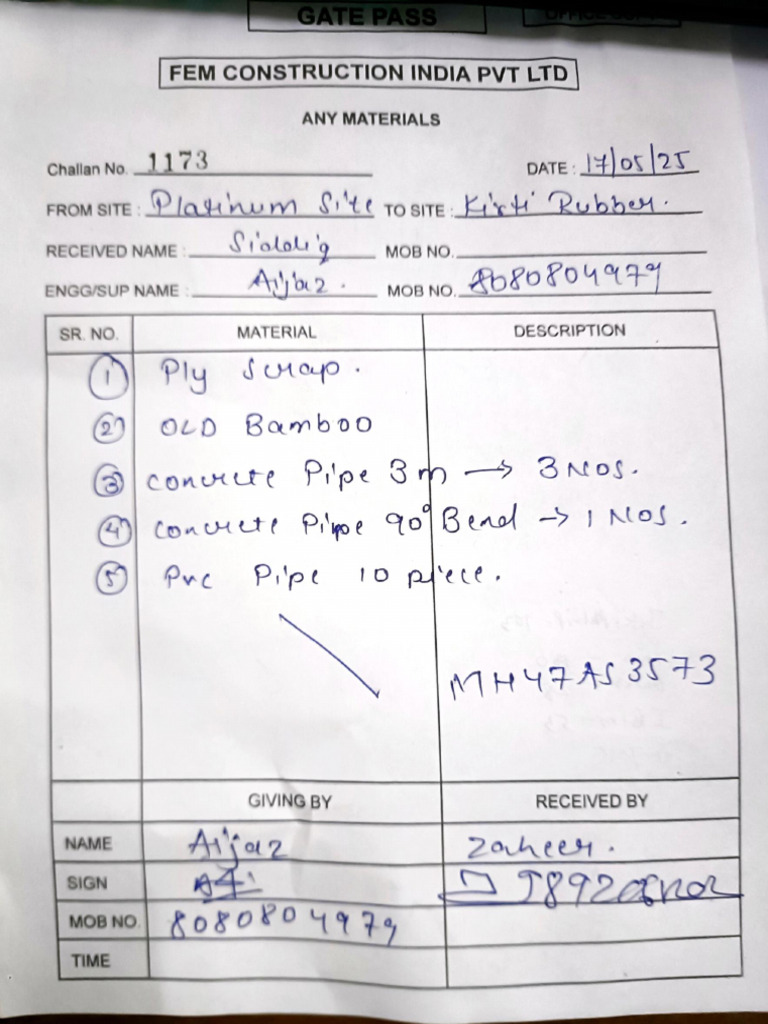 GATE PASS
OFFICE COPY
FEM CONSTRUCTION INDIA PVT LTD
ANY MATERIALS
Challan No. 1173 DATE : 17/05/25
FROM SITE : Platinum Site TO SITE : Kirti Rubber.
RECEIVED NAME : Siddiq MOB NO.
ENGG/SUP NAME : Aijaz. MOB NO. 8080804979
SR. NO. MATERIAL DESCRIPTION
1 Ply Scrap.
2 OLD Bamboo
3 Concrete Pipe 3m → 3 Nos.
4 Concrete Pipe 90° Bend → 1 Nos.
5 Pvc Pipe 10 piece.
MH47AS3573
GIVING BY RECEIVED BY
NAME Aijaz Zaheer.
SIGN
MOB NO. 8080804979
TIME